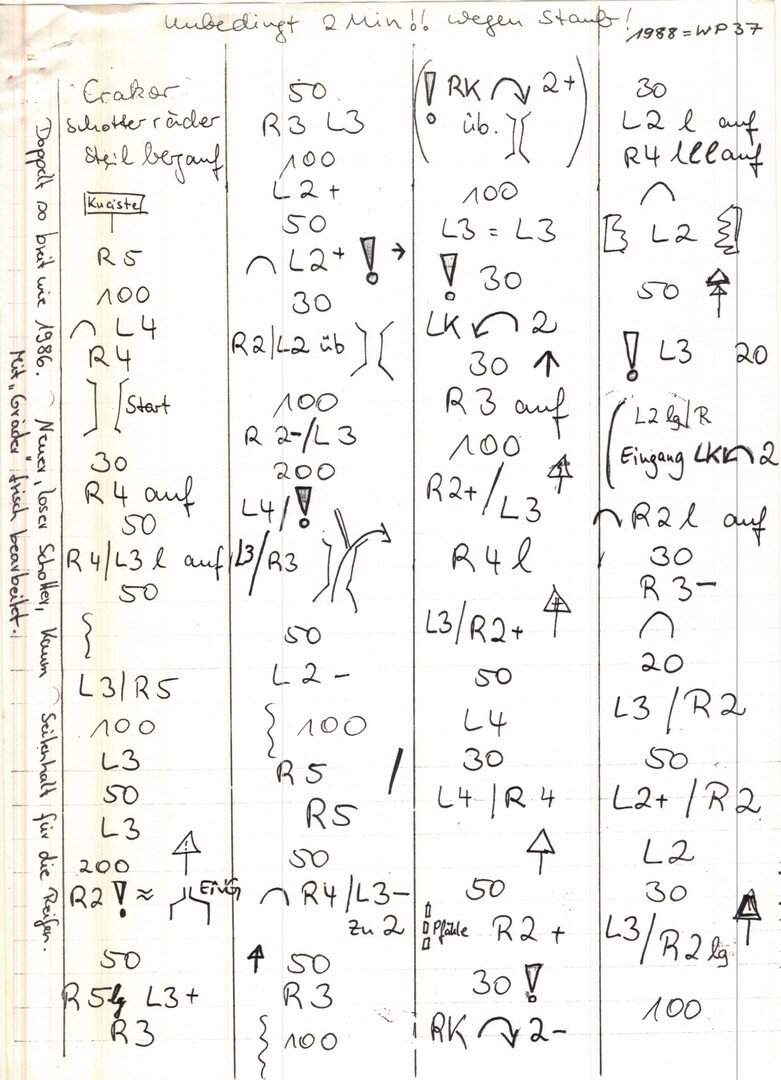 Unbedingt 2 Min!! wegen Staub!
1988 = WP 37
Doppelt so breit wie 1986. Neuer, loser Schotter, kaum Seitenhalt für die Reifen.
Mit "Gräder" frisch bearbeitet.
Schotterräder
Steil bergauf
R5
100
L4
R4
Start
30
R4 auf
50
R4/L3 l auf
50
L3/R5
100
L3
50
L3
200
R2 ! ≈ EING
50
R5 lg L3+
R3
50
R3 L3
100
L2+
50
L2+ ! →
30
R2/L2 üb
100
R2-/L3
200
L4/!
L3/R3
50
L2-
100
R5 /
R5
50
R4/L3-
zu 2
↑ 50
R3
100
(! RK 2+
üb. )
100
L3 = L3
! 30
LK 2
30 ↑
R3 auf
100
R2+/L3
R4 l
L3/R2+
50
L4
30
L4/R4
50
Pfähle R2+
30 !
RK 2-
30
L2 l auf
R4 lll auf
L2
50
! L3 20
( L2 lg/R
Eingang LK 2
R2 l auf
30
R3-
20
L3/R2
50
L2+/R2
L2
30
L3/R2 lg
100